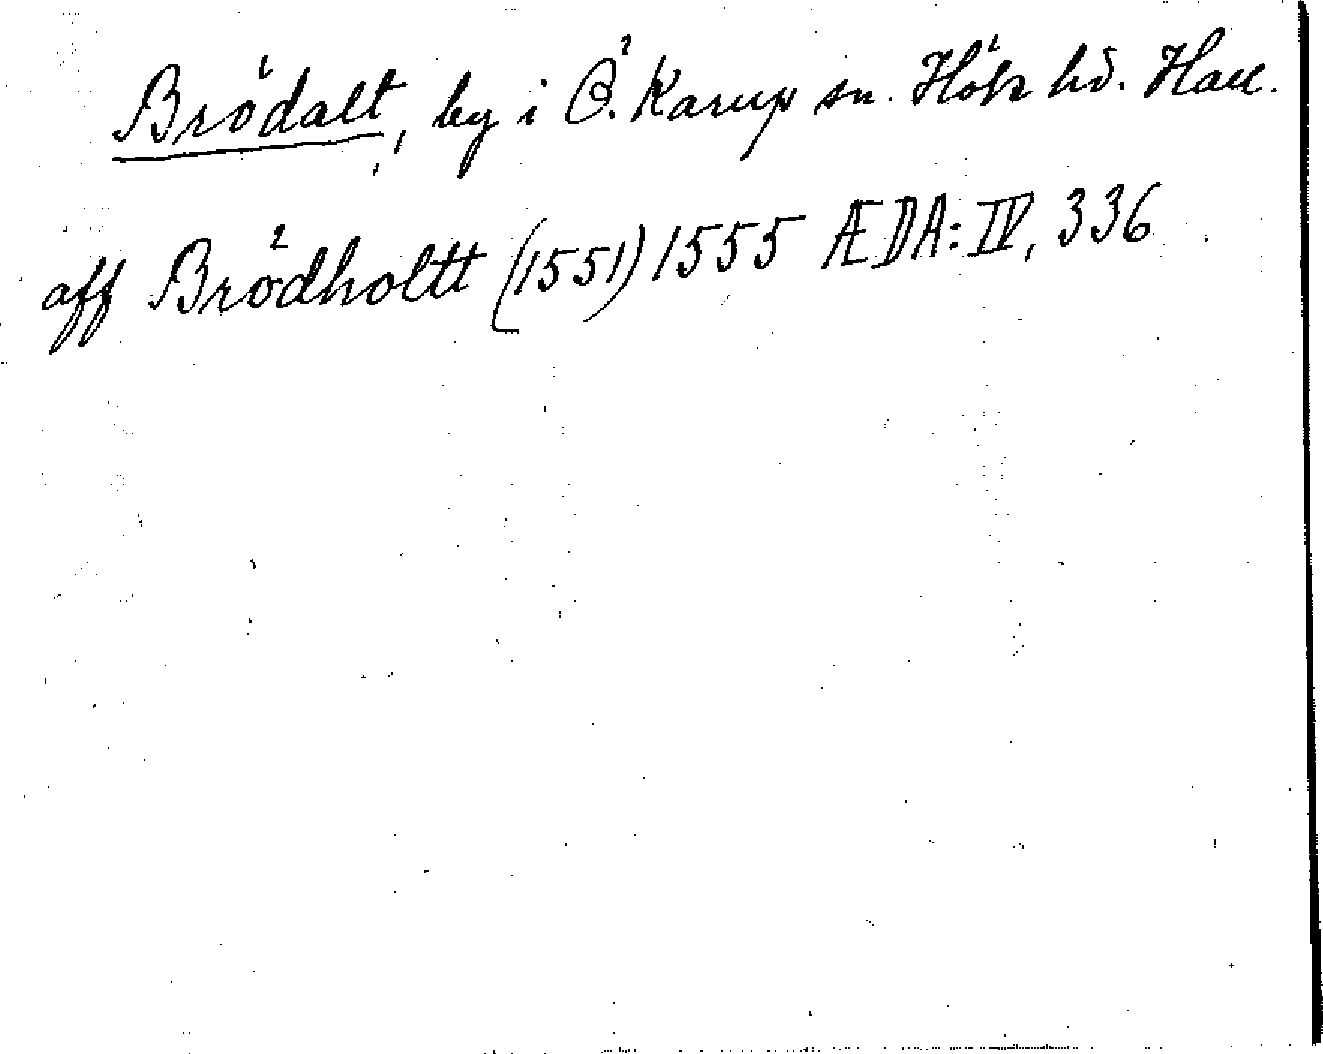 Brödalt, by i Ö. Karup sn. Höks hd. Hall.
aff Brödholtt (1551) 1555 ÆDA: IV, 336